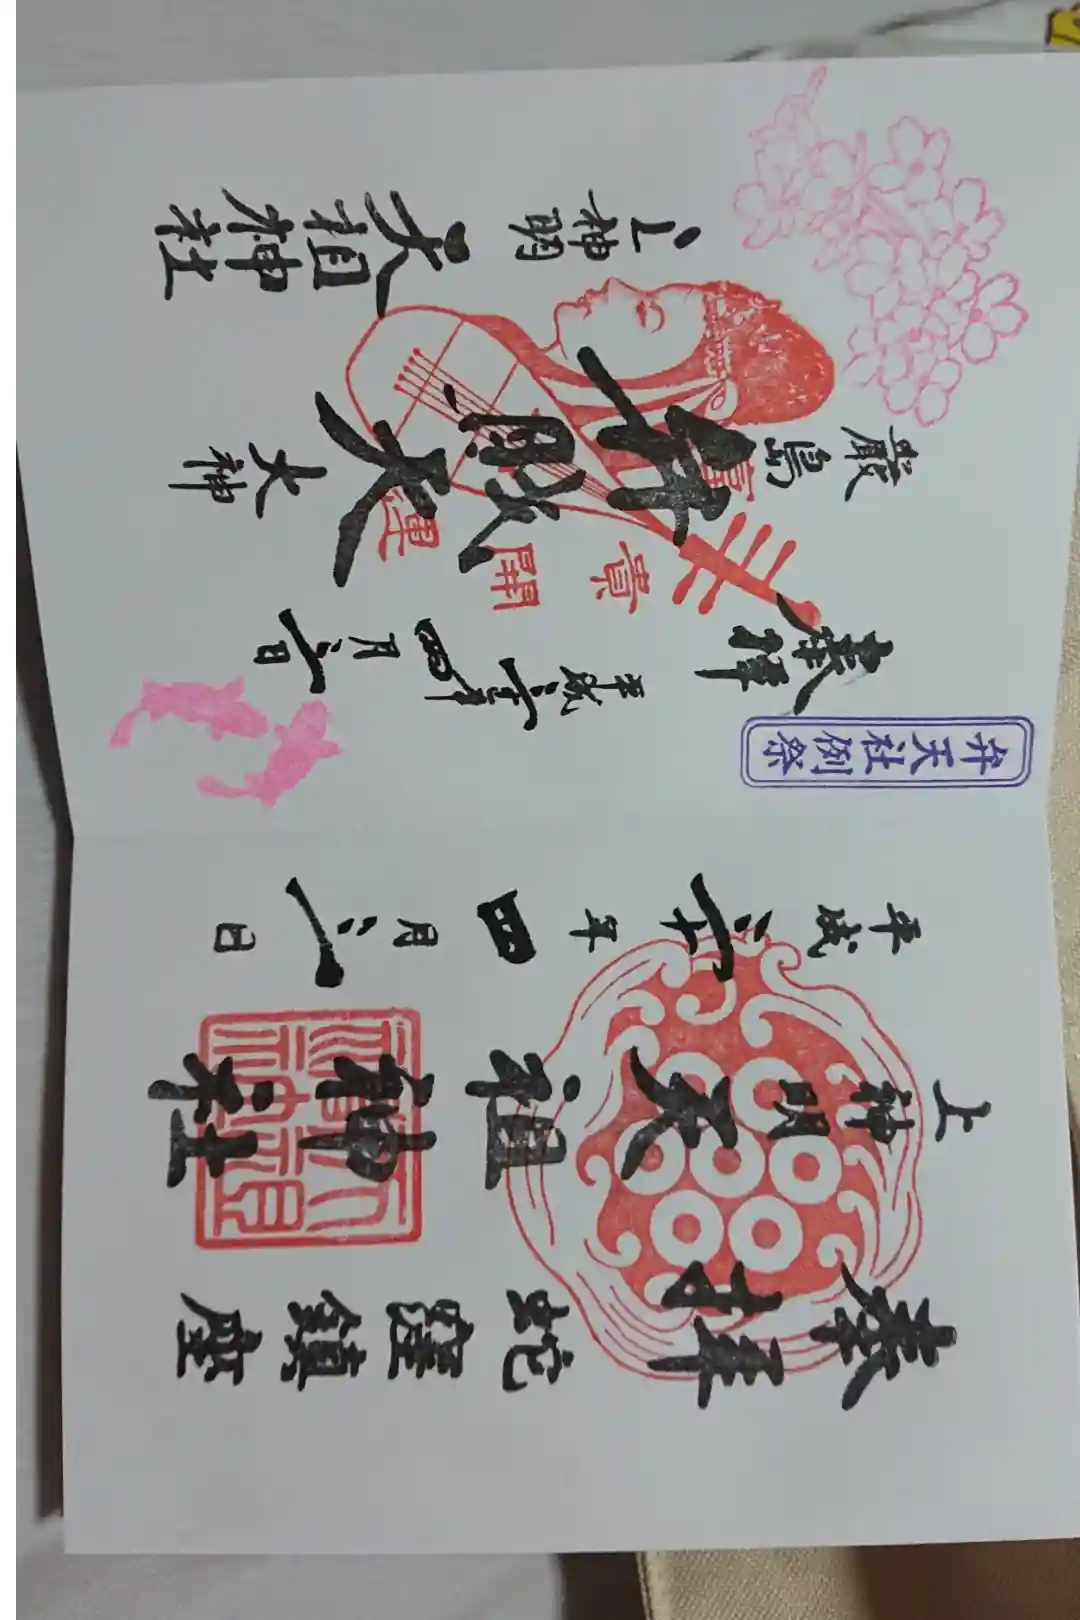 奉拝
蛇窪鎮座
上神明
天祖神社
平成三十年四月三日
弁天社例祭
奉拝
平成三十年
四月三日
厳島
弁財天
大神
開運
上神明
天祖神社